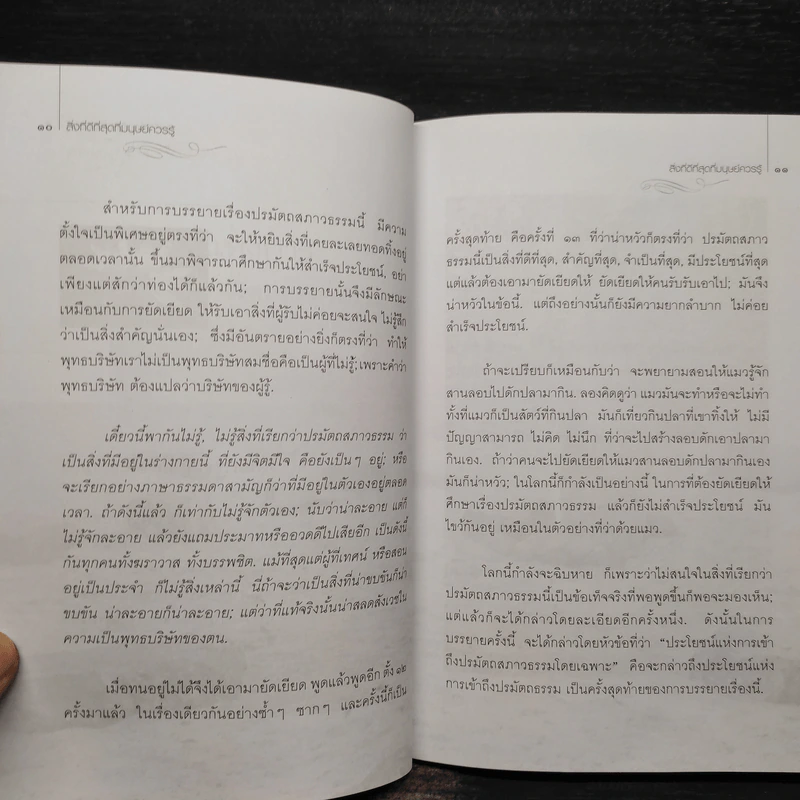 ๑๐ สิ่งที่ดีที่สุดที่มนุษย์ควรรู้
สำหรับการบรรยายเรื่องปรมัตถสภาวธรรมนี้ มีความ
ตั้งใจเป็นพิเศษอยู่ตรงที่ว่า จะให้หยิบสิ่งที่เคยละเลยทอดทิ้งอยู่
ตลอดเวลานั้น ขึ้นมาพิจารณาศึกษากันให้สำเร็จประโยชน์, อย่า
เพียงแต่สักว่าท่องได้ก็แล้วกัน; การบรรยายนั้นจึงมีลักษณะ
เหมือนกับการยัดเยียด ให้รับเอาสิ่งที่ผู้รับไม่ค่อยจะสนใจ ไม่รู้สึก
ว่าเป็นสิ่งสำคัญนั่นเอง; ซึ่งมีอันตรายอย่างยิ่งก็ตรงที่ว่า ทำให้
พุทธบริษัทเราไม่เป็นพุทธบริษัทสมชื่อคือเป็นผู้ที่ไม่รู้; เพราะคำว่า
พุทธบริษัท ต้องแปลว่าบริษัทของผู้รู้.
เดี๋ยวนี้พากันไม่รู้, ไม่รู้สิ่งที่เรียกว่าปรมัตถสภาวธรรม ว่า
เป็นสิ่งที่มีอยู่ในร่างกายนี้ ที่ยังมีจิตมีใจ คือยังเป็นๆ อยู่; หรือ
จะเรียกอย่างภาษาธรรมดาสามัญก็ว่าที่มีอยู่ในตัวเองอยู่ตลอด
เวลา. ถ้าดังนี้แล้ว ก็เท่ากับไม่รู้จักตัวเอง; นับว่าน่าละอาย แต่ก็
ไม่รู้จักละอาย แล้วยังแถมประมาทหรืออวดดีไปเสียอีก เป็นดังนี้
กันทุกคนทั้งฆราวาส ทั้งบรรพชิต. แม้ที่สุดแต่ผู้ที่เทศน์ หรือสอน
อยู่เป็นประจำ ก็ไม่รู้สิ่งเหล่านี้ นี่ถ้าจะว่าเป็นสิ่งที่น่าขบขันก็น่า
ขบขัน น่าละอายก็น่าละอาย; แต่ว่าที่แท้จริงนั้นน่าสลดสังเวชใน
ความเป็นพุทธบริษัทของตน.
เมื่อทนอยู่ไม่ได้จึงได้เอามายัดเยียด พูดแล้วพูดอีก ตั้ง ๑๒
ครั้งมาแล้ว ในเรื่องเดียวกันอย่างซ้ำๆ ซากๆ และครั้งนี้ก็เป็น
สิ่งที่ดีที่สุดที่มนุษย์ควรรู้ ๑๑
ครั้งสุดท้าย คือครั้งที่ ๑๓ ที่ว่าน่าหัวก็ตรงที่ว่า ปรมัตถสภาว
ธรรมนี้เป็นสิ่งที่ดีที่สุด, สำคัญที่สุด, จำเป็นที่สุด, มีประโยชน์ที่สุด
แต่แล้วต้องเอามายัดเยียดให้ ยัดเยียดให้คนรับรับเอาไป; มันจึง
น่าหัวในข้อนี้. แต่ถึงอย่างนั้นก็ยังมีความยากลำบาก ไม่ค่อย
สำเร็จประโยชน์.
ถ้าจะเปรียบก็เหมือนกับว่า จะพยายามสอนให้แมวรู้จัก
สานลอบไปดักปลามากิน. ลองคิดดูว่า แมวมันจะทำหรือจะไม่ทำ
ทั้งที่แมวก็เป็นสัตว์ที่กินปลา มันก็เที่ยวกินปลาที่เขาทิ้งให้ ไม่มี
ปัญญาสามารถ ไม่คิด ไม่นึก ที่ว่าจะไปสร้างลอบดักเอาปลามา
กินเอง. ถ้าว่าคนจะไปยัดเยียดให้แมวสานลอบดักปลามากินเอง
มันก็น่าหัว; ในโลกนี้ก็กำลังเป็นอย่างนี้ ในการที่ต้องยัดเยียดให้
ศึกษาเรื่องปรมัตถสภาวธรรม แล้วก็ยังไม่สำเร็จประโยชน์ มัน
ไขว้กันอยู่ เหมือนในตัวอย่างที่ว่าด้วยแมว.
โลกนี้กำลังจะฉิบหาย ก็เพราะว่าไม่สนใจในสิ่งที่เรียกว่า
ปรมัตถสภาวธรรมนี้เป็นข้อเท็จจริงที่พอพูดขึ้นก็พอจะมองเห็น;
แต่แล้วก็จะได้กล่าวโดยละเอียดอีกครั้งหนึ่ง. ดังนั้นในการ
บรรยายครั้งนี้ จะได้กล่าวโดยหัวข้อที่ว่า “ประโยชน์แห่งการเข้า
ถึงปรมัตถสภาวธรรมโดยเฉพาะ” คือจะกล่าวถึงประโยชน์แห่ง
การเข้าถึงปรมัตถธรรม เป็นครั้งสุดท้ายของการบรรยายเรื่องนี้.